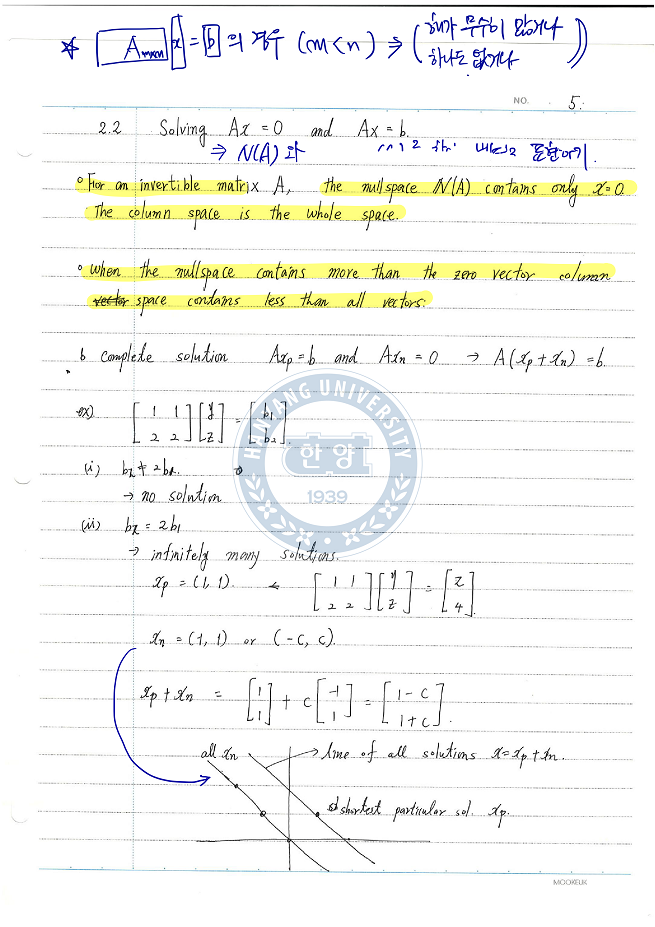 ☆ A_mxn x = b 의 경우 (m<n) ⇒ (해가 무수히 많거나
하나도 없거나)
NO. 5.
2.2 Solving Ax = 0 and Ax = b.
⇒ N(A) 와
° For an invertible matrix A, the nullspace N(A) contains only x=0.
The column space is the whole space.
° When the nullspace contains more than the zero vector column
space contains less than all vectors.
complete solution Axp = b and Axn = 0 → A(xp + xn) = b.
HANYANG UNIVERSITY
한양
1939
ex) [1 1; 2 2] [y; z] = [b1; b2].
(i) b2 ≠ 2b1.
→ no solution
(ii) b2 = 2b1
→ infinitely many solutions.
xp = (1, 1). ← [1 1; 2 2] [y; z] = [2; 4].
xn = (-1, 1) or (-c, c).
xp + xn = [1; 1] + c [-1; 1] = [1-c; 1+c].
all xn
→ line of all solutions x = xp + xn.
shortest particular sol. xp.
MOOKEUK